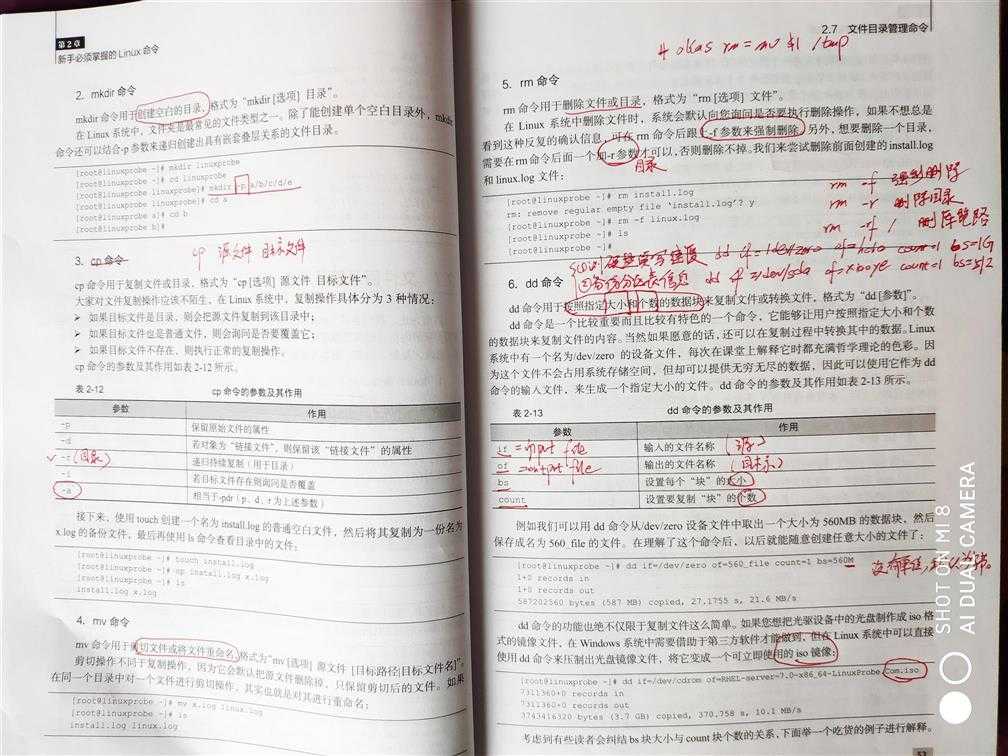 第2章
新手必须掌握的Linux 命令
2. mkdir 命令
mkdir 命令用于创建空白的目录，格式为“mkdir [选项] 目录”。
在 Linux 系统中，文件夹是最常见的文件类型之一。除了能创建单个空白目录外，mkdir
命令还可以结合-p 参数来递归创建出具有嵌套叠层关系的文件目录。
[root@linuxprobe ~]# mkdir linuxprobe
[root@linuxprobe ~]# cd linuxprobe
[root@linuxprobe linuxprobe]# mkdir -p a/b/c/d/e
[root@linuxprobe linuxprobe]# cd a
[root@linuxprobe a]# cd b
[root@linuxprobe b]#
3. cp 命令
cp 源文件 目标文件
cp 命令用于复制文件或目录，格式为“cp [选项] 源文件 目标文件”。
大家对文件复制操作应该不陌生，在 Linux 系统中，复制操作具体分为 3 种情况：
➢ 如果目标文件是目录，则会把源文件复制到该目录中；
➢ 如果目标文件也是普通文件，则会询问是否要覆盖它；
➢ 如果目标文件不存在，则执行正常的复制操作。
cp 命令的参数及其作用如表 2-12 所示。
表 2-12 cp 命令的参数及其作用
参数 作用
-p 保留原始文件的属性
-d 若对象为“链接文件”，则保留该“链接文件”的属性
-r (目录) 递归持续复制（用于目录）
-i 若目标文件存在则询问是否覆盖
-a 相当于-pdr（p、d、r 为上述参数）
接下来，使用 touch 创建一个名为 install.log 的普通空白文件，然后将其复制为一份名为
x.log 的备份文件，最后再使用 ls 命令查看目录中的文件：
[root@linuxprobe ~]# touch install.log
[root@linuxprobe ~]# cp install.log x.log
[root@linuxprobe ~]# ls
install.log x.log
4. mv 命令
mv 命令用于剪切文件或将文件重命名，格式为“mv [选项] 源文件 [目标路径|目标文件名]”。
剪切操作不同于复制操作，因为它会默认把源文件删除掉，只保留剪切后的文件。如果
在同一个目录中对一个文件进行剪切操作，其实也就是对其进行重命名：
[root@linuxprobe ~]# mv x.log linux.log
[root@linuxprobe ~]# ls
install.log linux.log
2.7 文件目录管理命令
rm = mv /tmp
5. rm 命令
rm 命令用于删除文件或目录，格式为“rm [选项] 文件”。
在 Linux 系统中删除文件时，系统会默认向您询问是否要执行删除操作，如果不想总是
看到这种反复的确认信息，可在 rm 命令后跟上-f 参数来强制删除。另外，想要删除一个目录，
需要在 rm 命令后面一个加-r 参数才可以，否则删除不掉。我们来尝试删除前面创建的 install.log
和 linux.log 文件：
目录
[root@linuxprobe ~]# rm install.log
rm: remove regular empty file 'install.log'? y
[root@linuxprobe ~]# rm -f linux.log
[root@linuxprobe ~]# ls
[root@linuxprobe ~]#
rm -f 强制删除
rm -r 删除目录
rm -rf / 删库跑路
硬盘读写速度 dd if=/dev/zero of= count=1 bs=1G
备份分区表信息 dd if=/dev/sda of=xiaoye count=1 bs=512
6. dd 命令
dd 命令用于按照指定大小和个数的数据块来复制文件或转换文件，格式为“dd [参数]”。
dd 命令是一个比较重要而且比较有特色的一个命令，它能够让用户按照指定大小和个数
的数据块来复制文件的内容。当然如果愿意的话，还可以在复制过程中转换其中的数据。Linux
系统中有一个名为/dev/zero 的设备文件，每次在课堂上解释它时都充满哲学理论的色彩。因
为这个文件不会占用系统存储空间，但却可以提供无穷无尽的数据，因此可以使用它作为 dd
命令的输入文件，来生成一个指定大小的文件。dd 命令的参数及其作用如表 2-13 所示。
表 2-13 dd 命令的参数及其作用
参数 作用
if =input file 输入的文件名称 (源)
of =output file 输出的文件名称 (目标)
bs 设置每个“块”的大小
count 设置要复制“块”的个数
例如我们可以用 dd 命令从/dev/zero 设备文件中取出一个大小为 560MB 的数据块，然后
保存成名为 560_file 的文件。在理解了这个命令后，以后就能随意创建任意大小的文件了：
[root@linuxprobe ~]# dd if=/dev/zero of=560_file count=1 bs=560M
1+0 records in
1+0 records out
587202560 bytes (587 MB) copied, 27.1755 s, 21.6 MB/s
dd 命令的功能也绝不仅限于复制文件这么简单。如果您想把光驱设备中的光盘制作成 iso 格
式的镜像文件，在 Windows 系统中需要借助于第三方软件才能做到，但在 Linux 系统中可以直接
使用 dd 命令来压制出光盘镜像文件，将它变成一个可立即使用的 iso 镜像：
[root@linuxprobe ~]# dd if=/dev/cdrom of=RHEL-server-7.0-x86_64-LinuxProbe.Com.iso
7311360+0 records in
7311360+0 records out
3743416320 bytes (3.7 GB) copied, 370.758 s, 10.1 MB/s
考虑到有些读者会纠结 bs 块大小与 count 块个数的关系，下面举一个吃货的例子进行解释。
SHOT ON MI 8
AI DUAL CAMERA